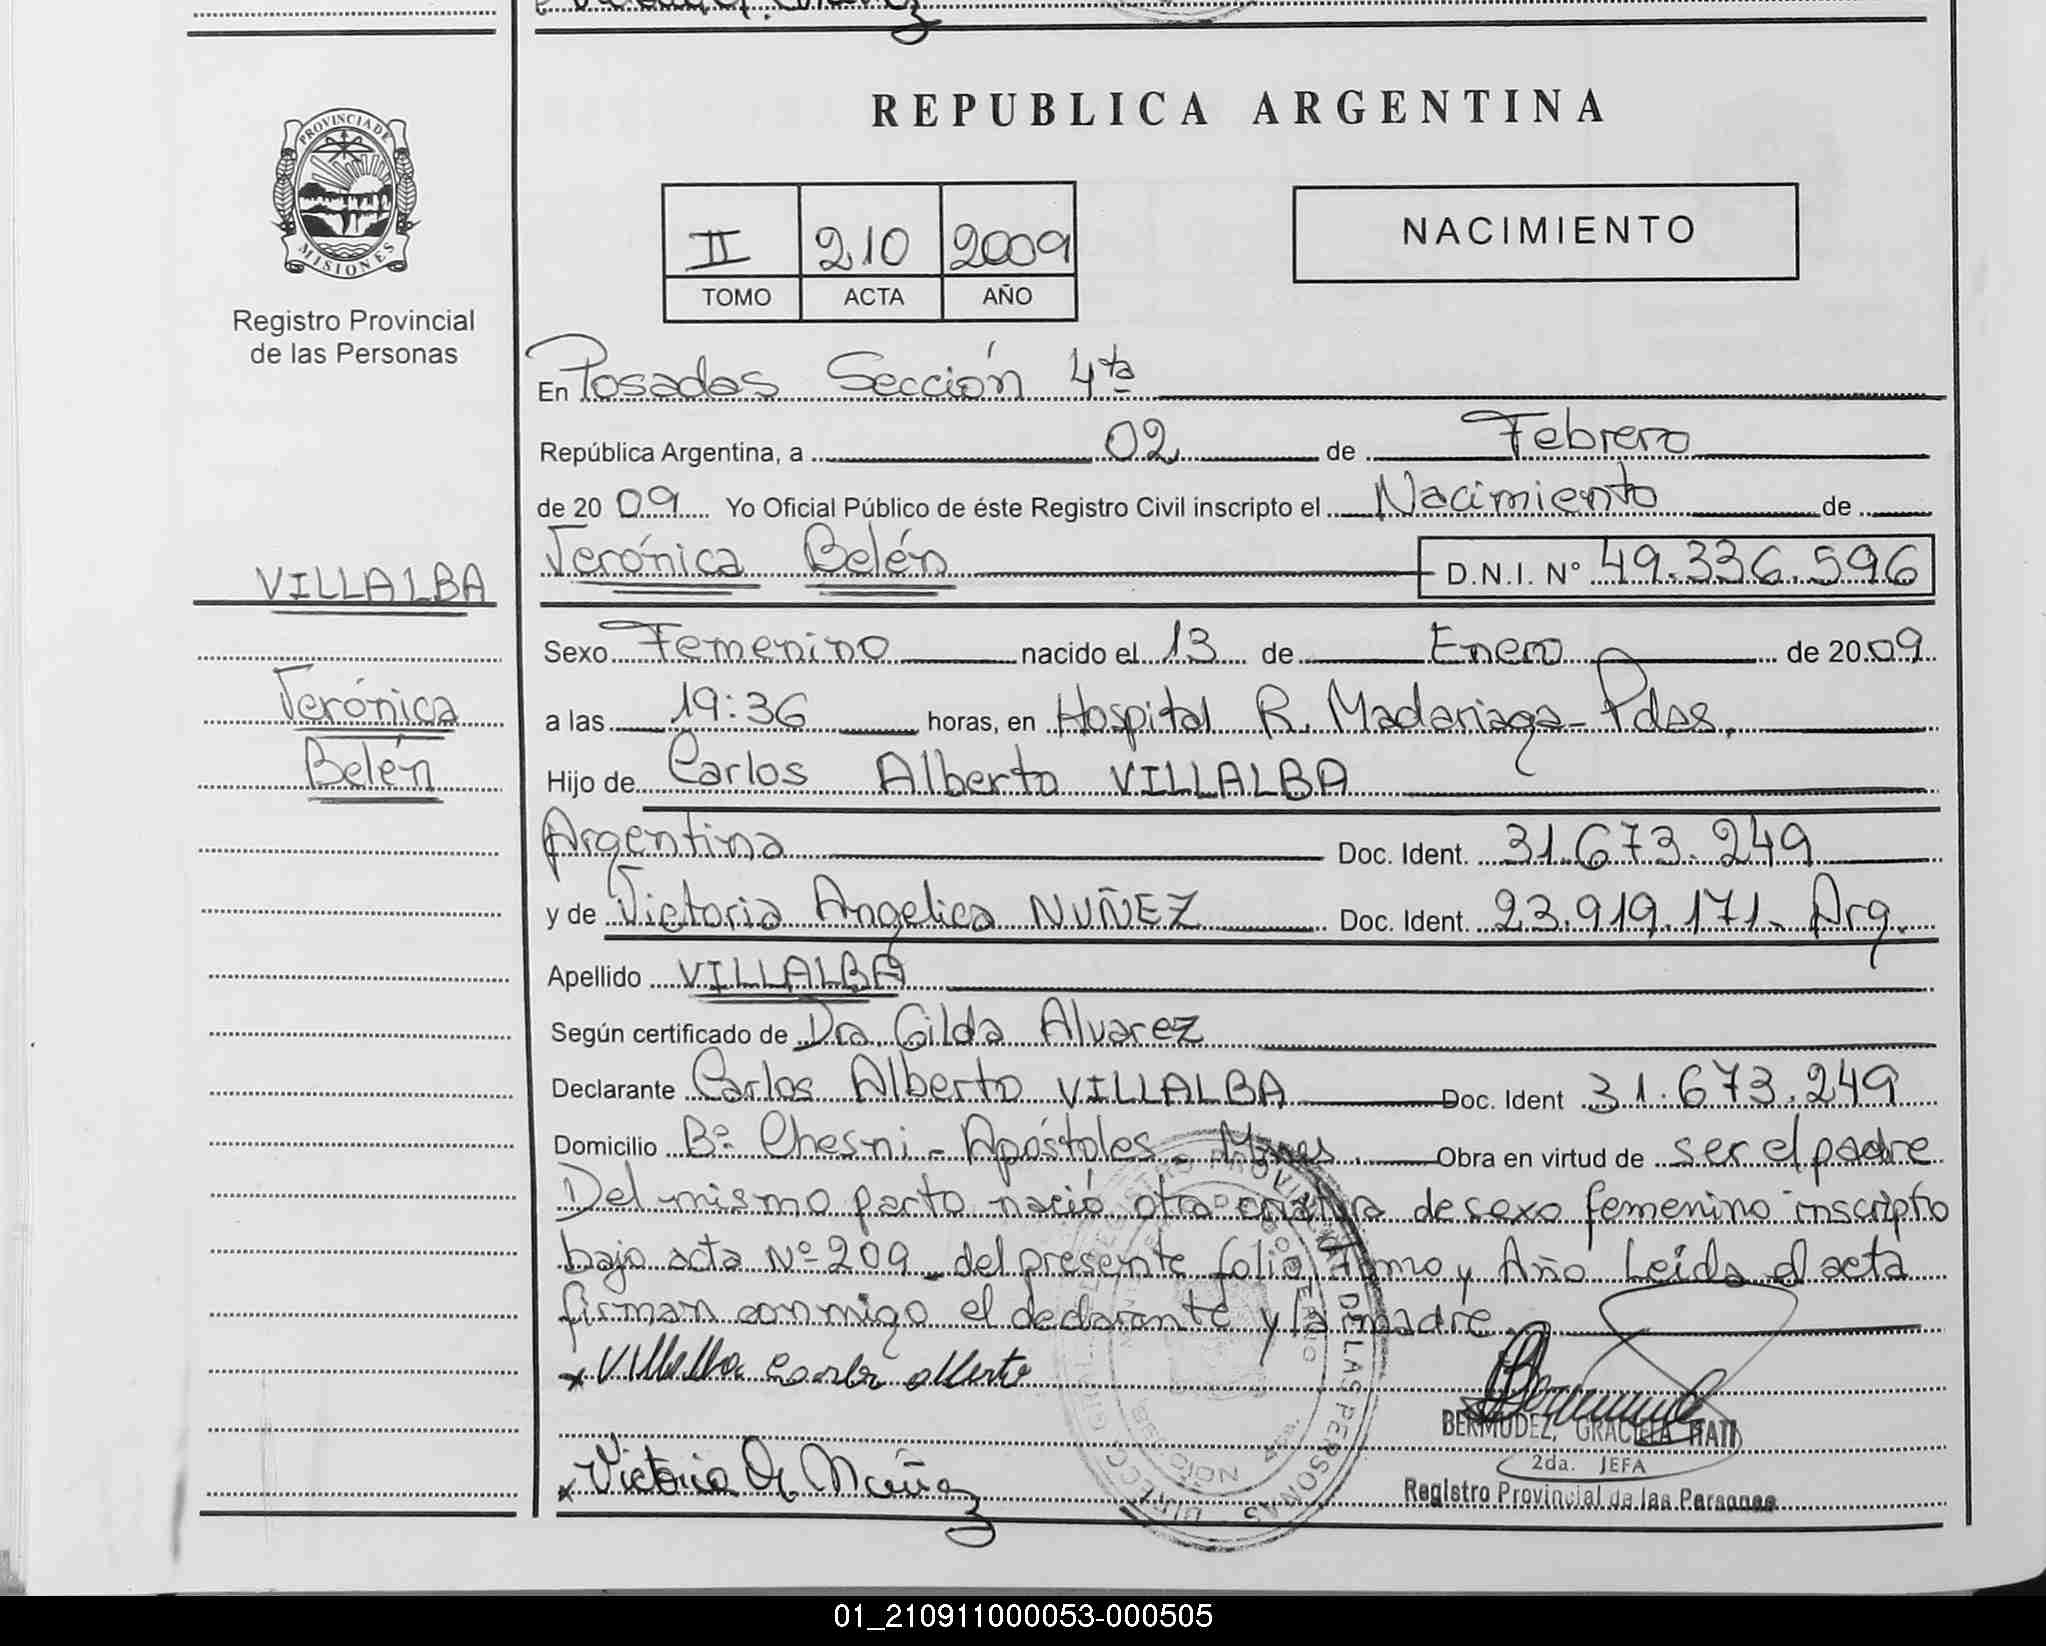 REPUBLICA ARGENTINA
PROVINCIA DE
MISIONES
Registro Provincial
de las Personas
II 210 2009
TOMO ACTA AÑO
NACIMIENTO
En Posadas Sección 4ta
República Argentina, a 02 de Febrero
de 20 09 Yo Oficial Público de éste Registro Civil inscripto el Nacimiento de
VILLALBA
Verónica
Belén
Verónica Belén D.N.I. N° 49.336.596
Sexo Femenino nacido el 13 de Enero de 20 09
a las 19:36 horas, en Hospital R. Madariaga - Pdas.
Hijo de Carlos Alberto VILLALBA
Argentina Doc. Ident. 31.673.249
y de Victoria Angelica NUÑEZ Doc. Ident. 23.919.171 - Arg.
Apellido VILLALBA
Según certificado de Dra. Gilda Alvarez
Declarante Carlos Alberto VILLALBA Doc. Ident 31.673.249
Domicilio Bº Chesni - Apóstoles - Mnes. Obra en virtud de ser el padre
Del mismo parto nació otra criatura de sexo femenino inscripto
bajo acta Nº 209 - del presente folio, Tomo y Año Leída el acta
firman conmigo el declarante y la madre
x Villalba Carlos Alberto
BERMUDEZ, GRACIELA ITATI
2da. JEFA
x Victoria A. Nuñez
Registro Provincial de las Personas
01_210911000053-000505